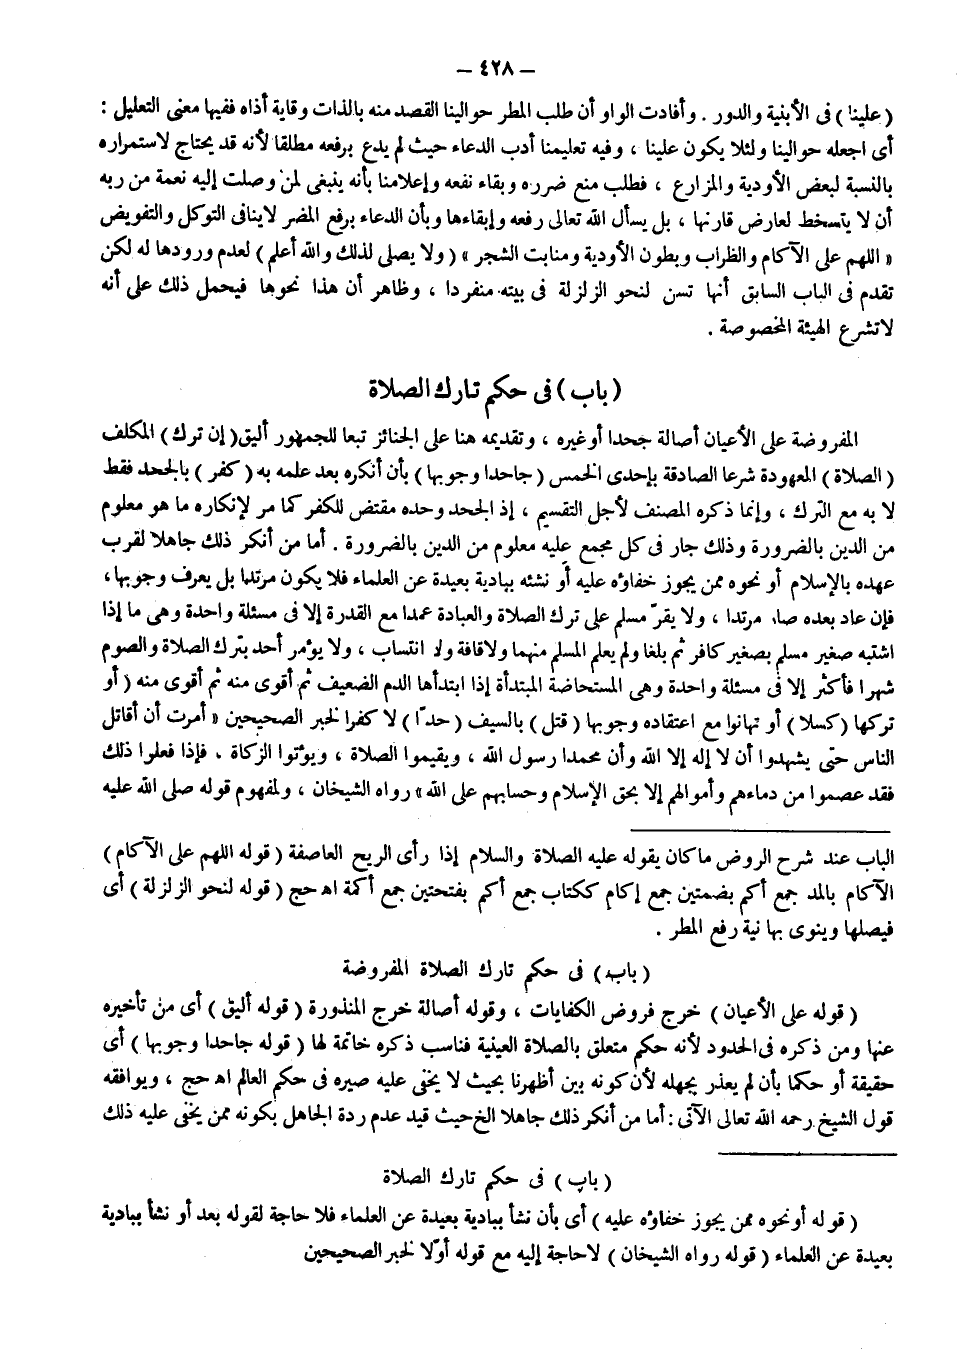 – ٤٢٨ –
( علينا ) فى الأبنية والدور . وأفادت الواو أن طلب المطر حوالينا القصد منه بالذات وقاية أذاه ففيها معنى التعليل :
أى اجعله حوالينا ولئلا يكون علينا ، وفيه تعليمنا أدب الدعاء حيث لم يدع برفعه مطلقا لأنه قد يحتاج لاستمراره
بالنسبة لبعض الأودية والمزارع ، فطلب منع ضرره وبقاء نفعه وإعلامنا بأنه ينبغى لمن وصلت إليه نعمة من ربه
أن لا يتسخط لعارض قارنها ، بل يسأل الله تعالى رفعه وإبقاءها وبأن الدعاء برفع المضر لاينافى التوكل والتفويض
« اللهم على الآكام والظراب وبطون الأودية ومنابت الشجر » ( ولا يصلى لذلك والله أعلم ) لعدم ورودها له لكن
تقدم فى الباب السابق أنها تسن لنحو الزلزلة فى بيته منفردا ، وظاهر أن هذا نحوها فيحمل ذلك على أنه
لاتشرع الهيئة المخصوصة .
( باب ) فى حكم تارك الصلاة
المفروضة على الأعيان أصالة جحدا أوغيره ، وتقديمه هنا على الجنائز تبعا للجمهور أليق ( إن ترك ) المكلف
( الصلاة ) المعهودة شرعا الصادقة بإحدى الخمس ( جاحدا وجوبها ) بأن أنكره بعد علمه به ( كفر ) بالجحد فقط
لا به مع الترك ، وإنما ذكره المصنف لأجل التقسيم ، إذ الجحد وحده مقتض للكفر كما مر لإنكاره ما هو معلوم
من الدين بالضرورة وذلك جار فى كل مجمع عليه معلوم من الدين بالضرورة . أما من أنكر ذلك جاهلا لقرب
عهده بالإسلام أو نحوه ممن يجوز خفاؤه عليه أو نشئه ببادية بعيدة عن العلماء فلا يكون مرتدا بل يعرف وجوبها ،
فإن عاد بعده صار مرتدا ، ولا يقرّ مسلم على ترك الصلاة والعبادة عمدا مع القدرة إلا فى مسئلة واحدة وهى ما إذا
اشتبه صغير مسلم بصغير كافر ثم بلغا ولم يعلم المسلم منهما ولاقافة ولا انتساب ، ولا يؤمر أحد بترك الصلاة والصوم
شهرا فأكثر إلا فى مسئلة واحدة وهى المستحاضة المبتدأة إذا ابتدأها الدم الضعيف ثم أقوى منه ثم أقوى منه ( أو
تركها ( كسلا ) أو تهاونا مع اعتقاده وجوبها ( قتل ) بالسيف ( حدّا ) لا كفرا لخبر الصحيحين « أمرت أن أقاتل
الناس حتى يشهدوا أن لا إله إلا الله وأن محمدا رسول الله ، ويقيموا الصلاة ، ويؤتوا الزكاة . فإذا فعلوا ذلك
فقد عصموا من دماءهم وأموالهم إلا بحق الإسلام وحسابهم على الله » رواه الشيخان ، ولمفهوم قوله صلى الله عليه
الباب عند شرح الروض ماكان يقوله عليه الصلاة والسلام إذا رأى الريح العاصفة ( قوله اللهم على الآكام )
الآكام بالمد جمع أكم بضمتين جمع إكام ككتاب جمع أكم بفتحتين جمع أكمة اه حج ( قوله لنحو الزلزلة ) أى
فيصلها وينوى بها نية رفع المطر .
( باب ) فى حكم تارك الصلاة المفروضة
( قوله على الأعيان ) خرج فروض الكفايات ، وقوله أصالة خرج المنذورة ( قوله أليق ) أى من تأخيره
عنها ومن ذكره فى الحدود لأنه حكم متعلق بالصلاة العينية فناسب ذكره خاتمة لها ( قوله جاحدا وجوبها ) أى
حقيقة أو حكما بأن لم يعذر بجهله لأن كونه بين أظهرنا بحيث لا يخفى عليه صيره فى حكم العالم اه حج ، ويوافقه
قول الشيخ رحمه الله تعالى الآتى : أما من أنكر ذلك جاهلا الخ حيث قيد عدم ردة الجاهل بكونه ممن يخفى عليه ذلك
( باب ) فى حكم تارك الصلاة
( قوله أو نحوه ممن يجوز خفاؤه عليه ) أى بأن نشأ ببادية بعيدة عن العلماء فلا حاجة لقوله بعد أو نشأ ببادية
بعيدة عن العلماء ( قوله رواه الشيخان ) لاحاجة إليه مع قوله أوّلا لخبر الصحيحين